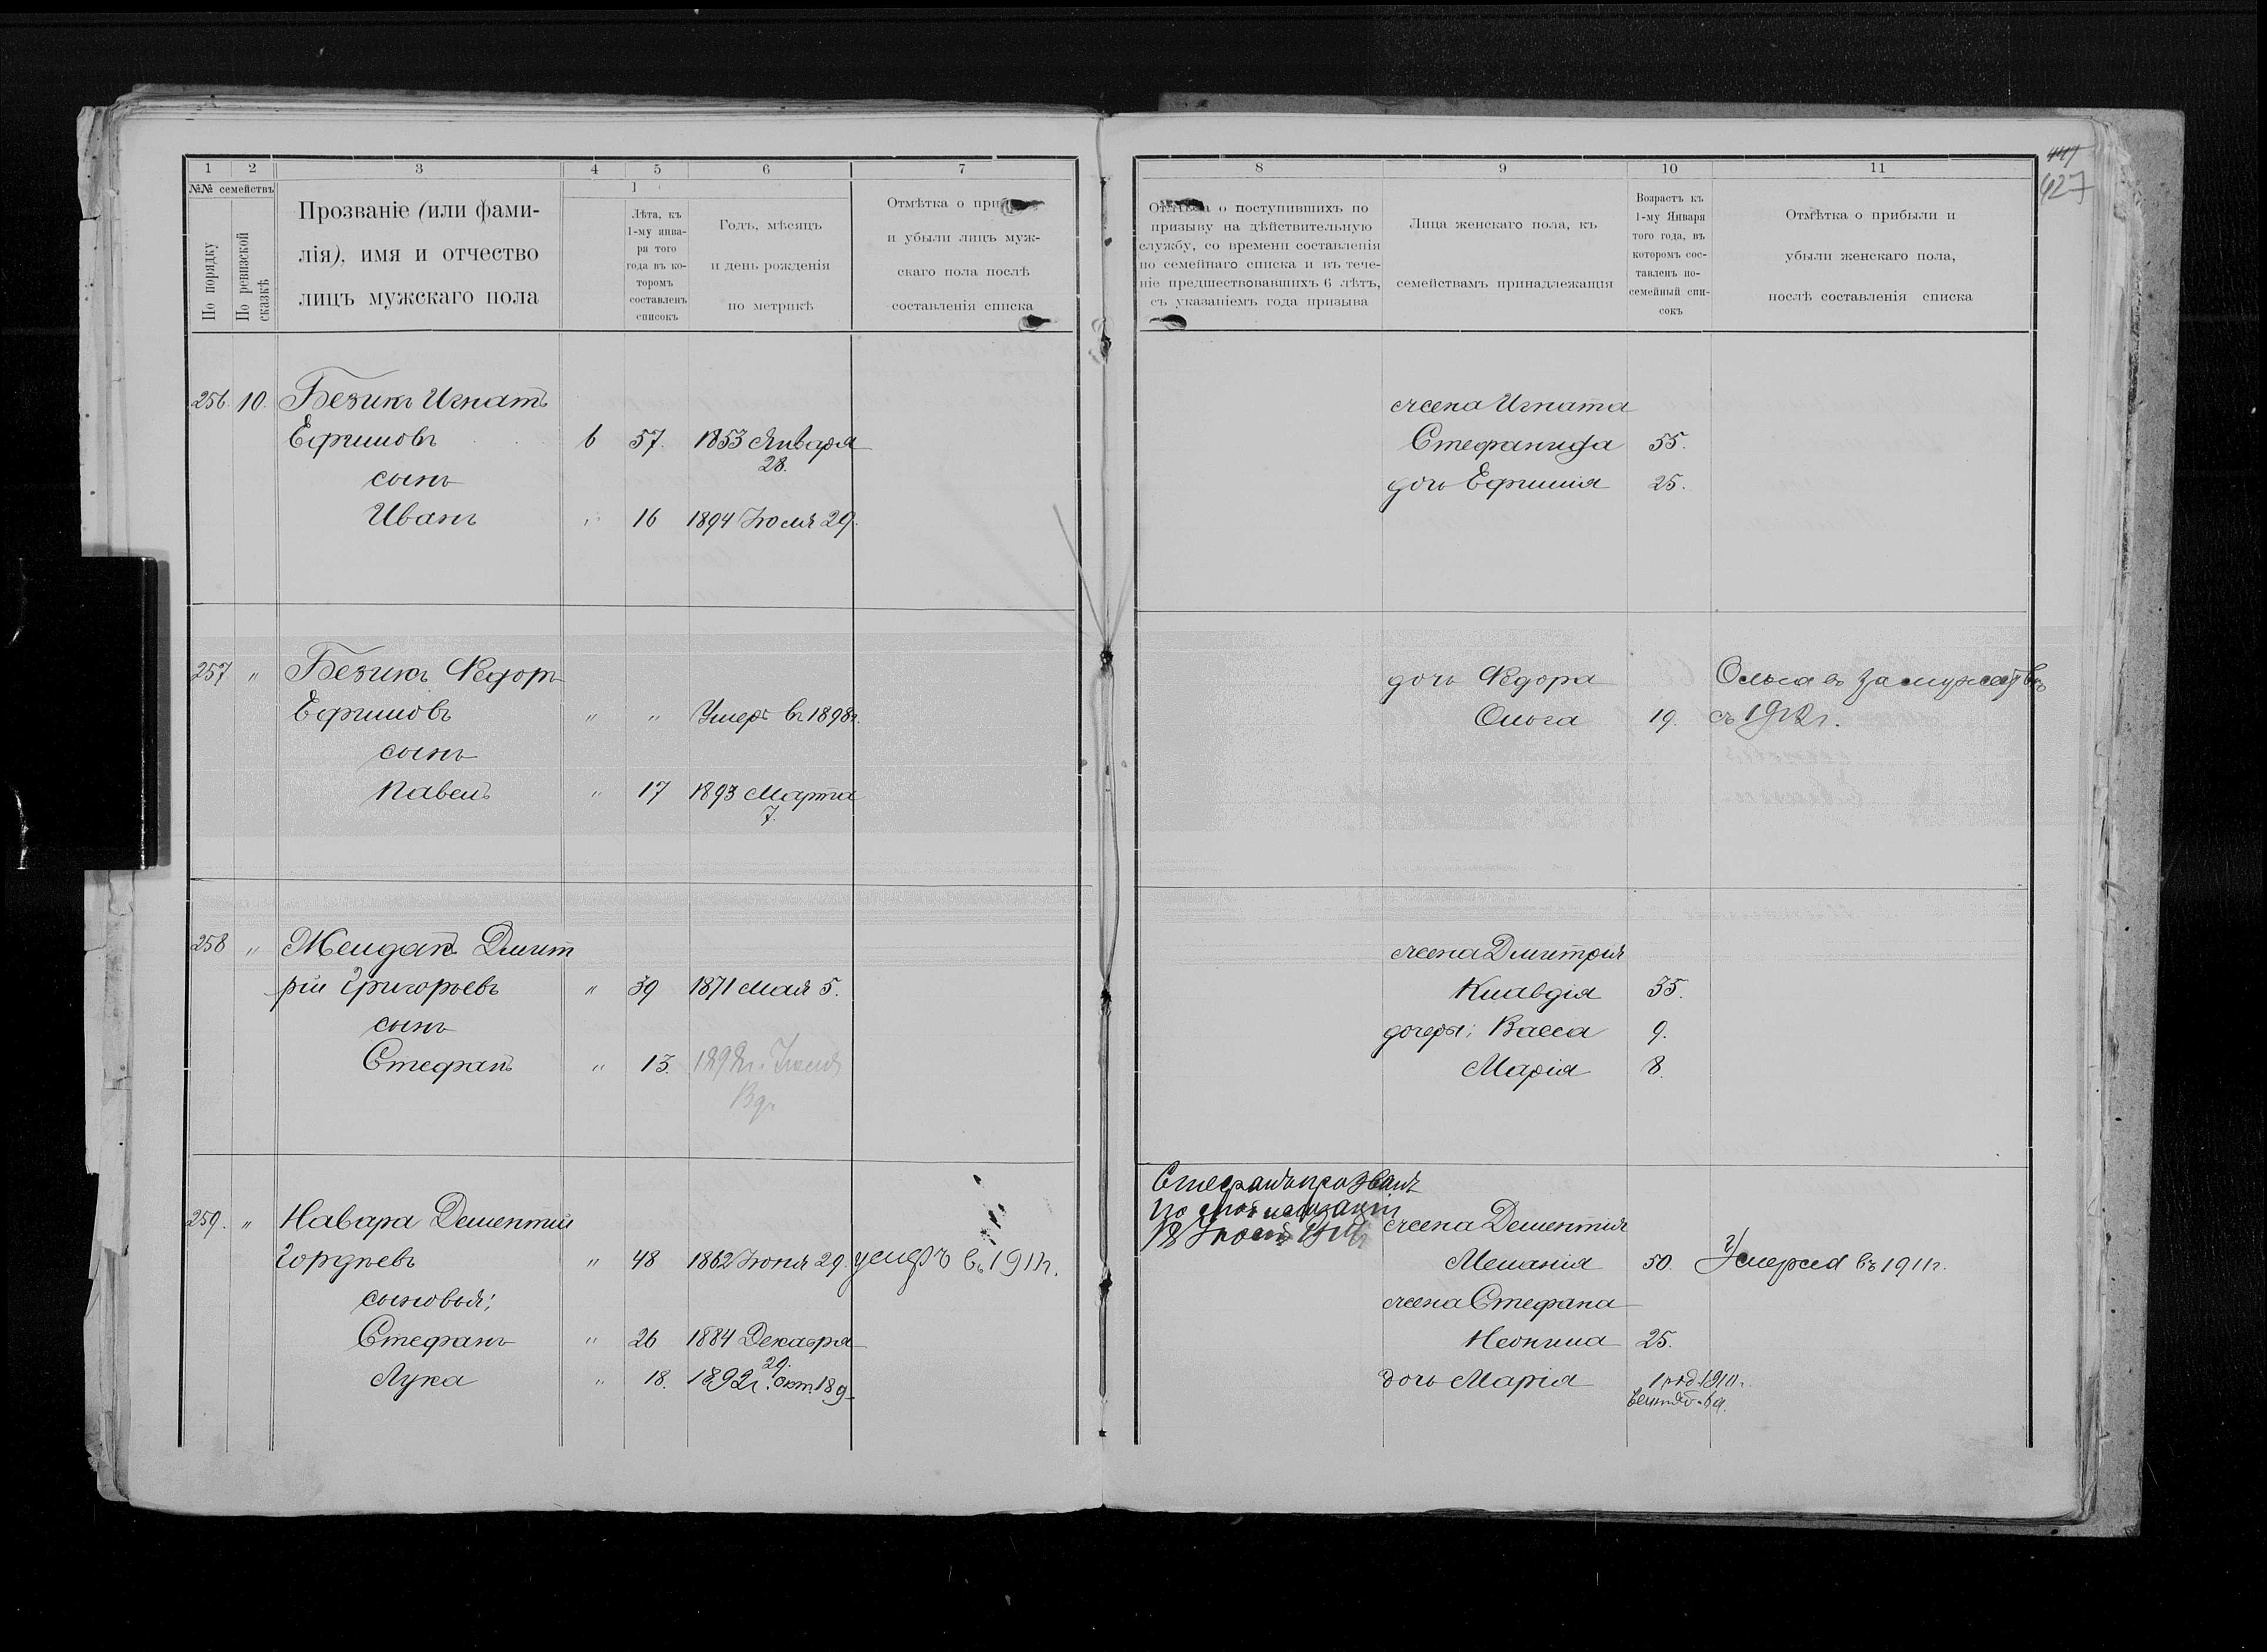 447
427
1 2 3 4 5 6 7
№№ семействъ
По порядку
По ревизской сказкѣ
Прозваніе (или фами-
лія), имя и отчество
лицъ мужскаго пола
Лѣта, къ
1-му янва-
ря того
года въ ко-
торомъ
составленъ
списокъ
Годъ, мѣсяцъ
и день рожденія
по метрикѣ
Отмѣтка о
и убыли лицъ муж-
скаго пола послѣ
составленія списка
8 9 10 11
о поступившихъ по
призыву на дѣйствительную
службу, со времени составленія
по семейнаго списка и въ тече-
ніе предшествовавшихъ 6 лѣтъ,
съ указаніемъ года призыва
Лица женскаго пола, къ
семействамъ принадлежащія
Возрастъ къ
1-му Января
того года, въ
которомъ сос-
тавленъ по-
семейный спи-
сокъ
Отмѣтка о прибыли и
убыли женскаго пола,
послѣ составленія списка
256. 10. Безикъ Игнатъ
Ефимовъ 6 57. 1853 Января
28.
сынъ
Иванъ " 16 1894 Іюля 29.
жена Игната
Стефанида 55.
дочь Ефимія 25.
257 " Безикъ Ѳедоръ
Ефимовъ " " Умеръ въ 1898г.
сынъ
Павелъ " 17 1893 Марта
7.
дочь Ѳедора Ольга въ замужествѣ
Ольга 19. съ 1912г.
258 " Желдакъ Дмит
рій Григорьевъ " 39 1871 Мая 5.
сынъ
Стефанъ " 13. 1898г. Іюля
жена Дмитрія
Клавдія 35.
дочери; Васса 9.
Марія 8.
259. " Навара Дементій
Гордѣевъ " 48 1862 Іюня 29. умеръ въ 1911г.
сыновья;
Стефанъ " 26 1884 Декабря
29.
Лука " 18. 1892г. окт 18 д
Стефанъ призванъ
по мобилизаціи
18 Іюля 1914г
жена Дементія
Меланія 50. Умерла въ 1911г.
жена Стефана
Неонила 25.
дочь Марія 1 род. 1910г.